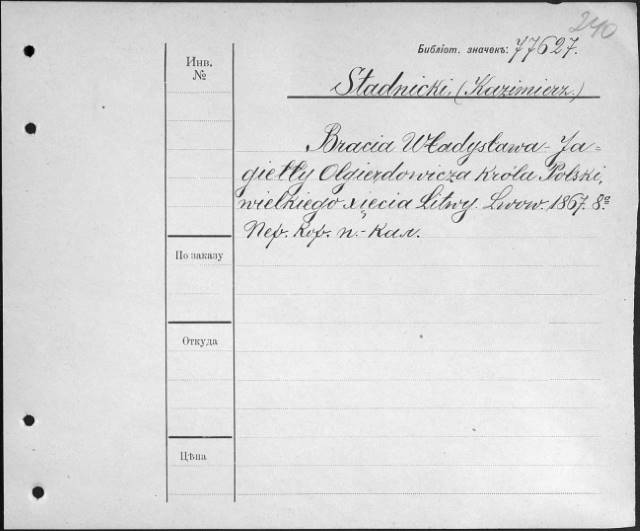 240
Библіот. значекъ: 77627.
Инв.
№
Stadnicki, (Kazimierz)
Bracia Władysława-Ja-
giełły Olgierdowicza Króla Polski,
wielkiego xięcia Litwy. Lwow. 1867. 8º
Пер. Кор. п.-Кал.
По заказу
Откуда
Цѣна